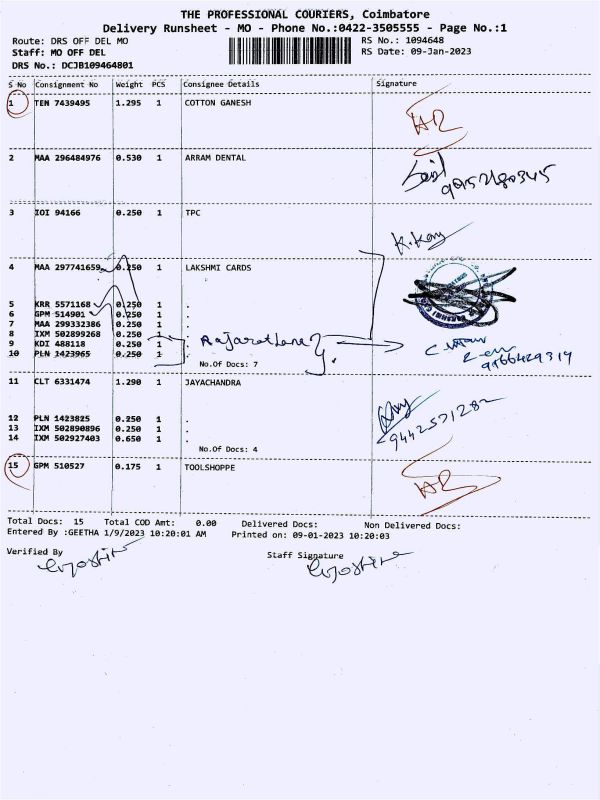 THE PROFESSIONAL COURIERS, Coimbatore
Delivery Runsheet - MO - Phone No.:0422-3505555 - Page No.:1
Route: DRS OFF DEL MO RS No.: 1094648
Staff: MO OFF DEL RS Date: 09-Jan-2023
DRS No.: DCJB109464801
S No Consignment No Weight PCS Consignee Details Signature
1 TEN 7439495 1.295 1 COTTON GANESH
2 MAA 296484976 0.530 1 ARRAM DENTAL
3 IOI 94166 0.250 1 TPC
4 MAA 297741659 0.250 1 LAKSHMI CARDS
5 KRR 5571168 0.250 1 .
6 GPM 514901 0.250 1 .
7 MAA 299332386 0.250 1 .
8 IXM 502899268 0.250 1 .
9 KDI 488118 0.250 1 .
10 PLN 1423965 0.250 1 .
No.Of Docs: 7
11 CLT 6331474 1.290 1 JAYACHANDRA
9442571282
12 PLN 1423825 0.250 1 .
13 IXM 502890896 0.250 1 .
14 IXM 502927403 0.650 1 .
No.Of Docs: 4
15 GPM 510527 0.175 1 TOOLSHOPPE
Total Docs: 15 Total COD Amt: 0.00 Delivered Docs: Non Delivered Docs:
Entered By :GEETHA 1/9/2023 10:20:01 AM Printed on: 09-01-2023 10:20:03
Verified By Staff Signature